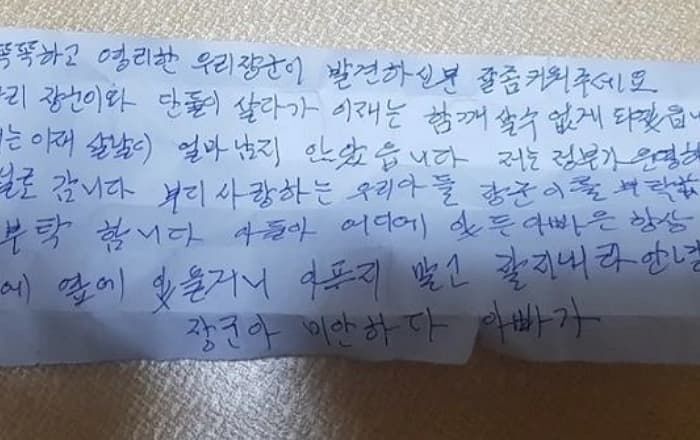 똑똑하고 영리한 우리장군이 발견하신분 잘좀키워주세요
장군이와 단둘이 살다가 이재는 함깨 살수 없게 되겠읍니
는 이재 살날이 얼마 남지 안았읍니다 저는 정부가 운영하
로 갑니다 부디 사랑하는 우리아들 장군이를 부탁
부탁 합니다 아들아 어디에 있든 아빠은 항상
에 옆에 있을거니 아프지 말고 잘지내라 안녕
장군아 미안하다 아빠가